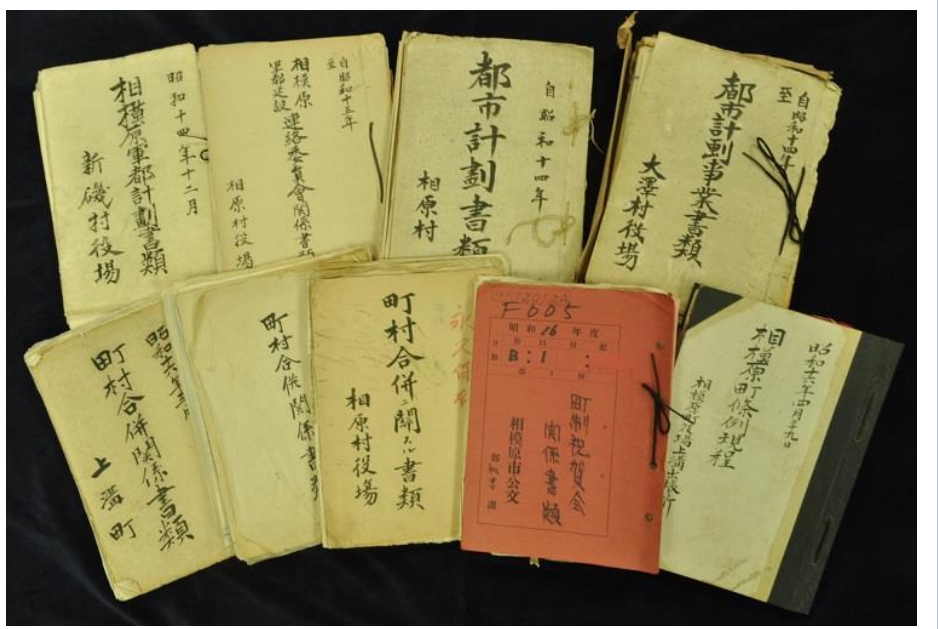 昭和十四年十二月
相模原軍都計劃書類
新磯村役場
自昭和十五年
至
相模原
軍都建設
連絡委員會関係書類
相原村役場
自昭和十四年
都市計劃書類
相原村
自昭和十四年
至
都市計劃事業書類
大澤村役場
昭和十六年三月
町村合併関係書類
上溝町
町村合併関係書類
町村合併ニ関スル書類
相原村役場
F005
昭和16年度
B:1
町制祝賀会
関係書類
相模原市公文
昭和十六年四月二十九日
相模原町條例規程